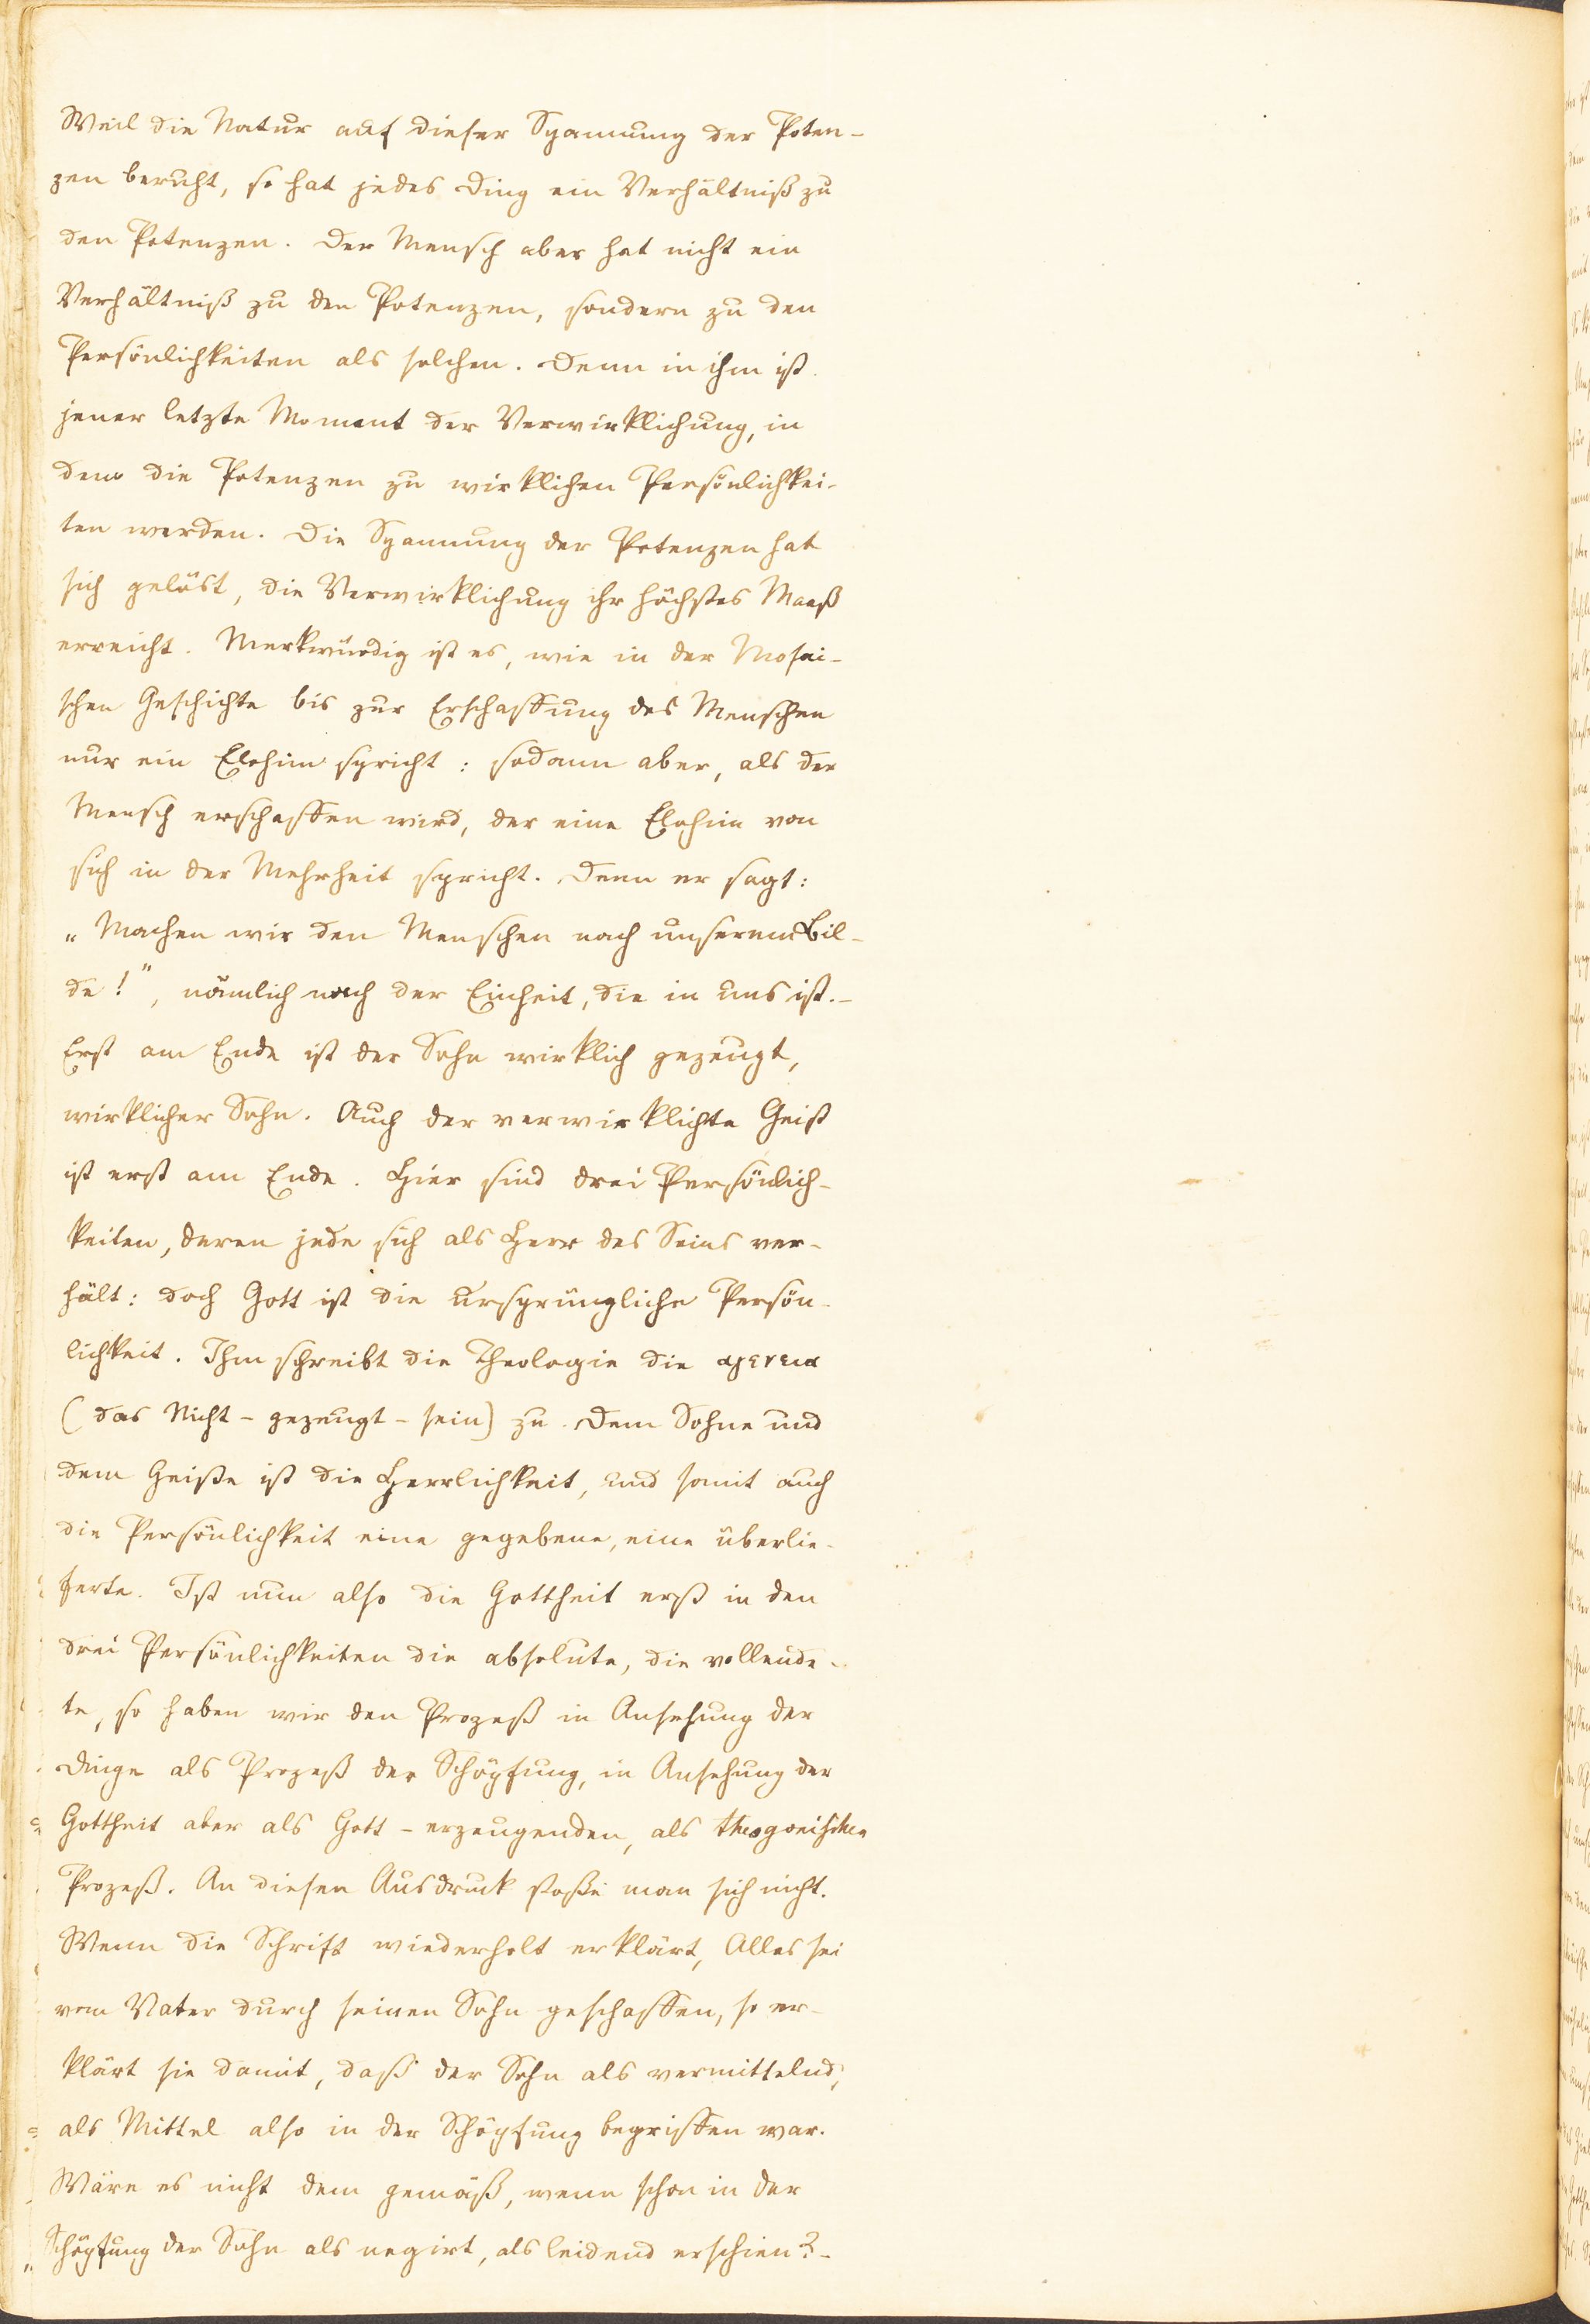 Weil die Natur auf dieser Spannung der Poten-
zen beruht, so hat jedes Ding ein Verhältniß zu
den Potenzen. Der Mensch aber hat nicht ein
Verhältniß zu den Potenzen, sondern zu den
Persönlichkeiten als solchen. Denn in ihm ist
jener letzte Moment der Verwirklichung, in
dem die Potenzen zu wirklichen Persönlichkei-
ten werden. Die Spannung der Potenzen hat
sich gelöst, die Verwirklichung ihr höchstes Maaß
erreicht. Merkwürdig ist es, wie in der Mosai-
schen Geschichte bis zur Erschaffung des Menschen
nur ein Elohim spricht: sodann aber, als der
Mensch erschaffen wird, der eine Elohim von
sich in der Mehrheit spricht. Denn er sagt:
„Machen wir den Menschen nach unserem Bil-
de!", nämlich nach der Einheit, die in uns ist.-
Erst am Ende ist der Sohn wirklich gezeugt,
wirklicher Sohn. Auch der verwirklichte Geist
ist erst am Ende. Hier sind drei Persönlich-
keiten, deren jede sich als Herr des Seins ver-
hält: doch Gott ist die ursprüngliche Persön-
lichkeit. Ihm schreibt die Theologie die αγενεια
(das Nicht-gezeugt-sein) zu. Dem Sohne und
dem Geiste ist die Herrlichkeit, und somit auch
die Persönlichkeit eine gegebene, eine überlie-
ferte. Ist nun also die Gottheit erst in den
drei Persönlichkeiten die absolute, die vollende-
te, so haben wir den Prozeß in Ansehung der
Dinge als Prozeß der Schöpfung, in Ansehung der
Gottheit aber als Gott-erzeugenden, als theogonischen
Prozeß. An diesen Ausdruck stoße man sich nicht.
Wenn die Schrift wiederholt erklärt, Alles sei
vom Vater durch seinen Sohn geschaffen, so er-
klärt sie damit, daß der Sohn als vermittelnd,
als Mittel also in der Schöpfung begriffen war.
Wäre es nicht dem gemäß, wenn schon in der
Schöpfung der Sohn als negirt, als leidend erschien?-